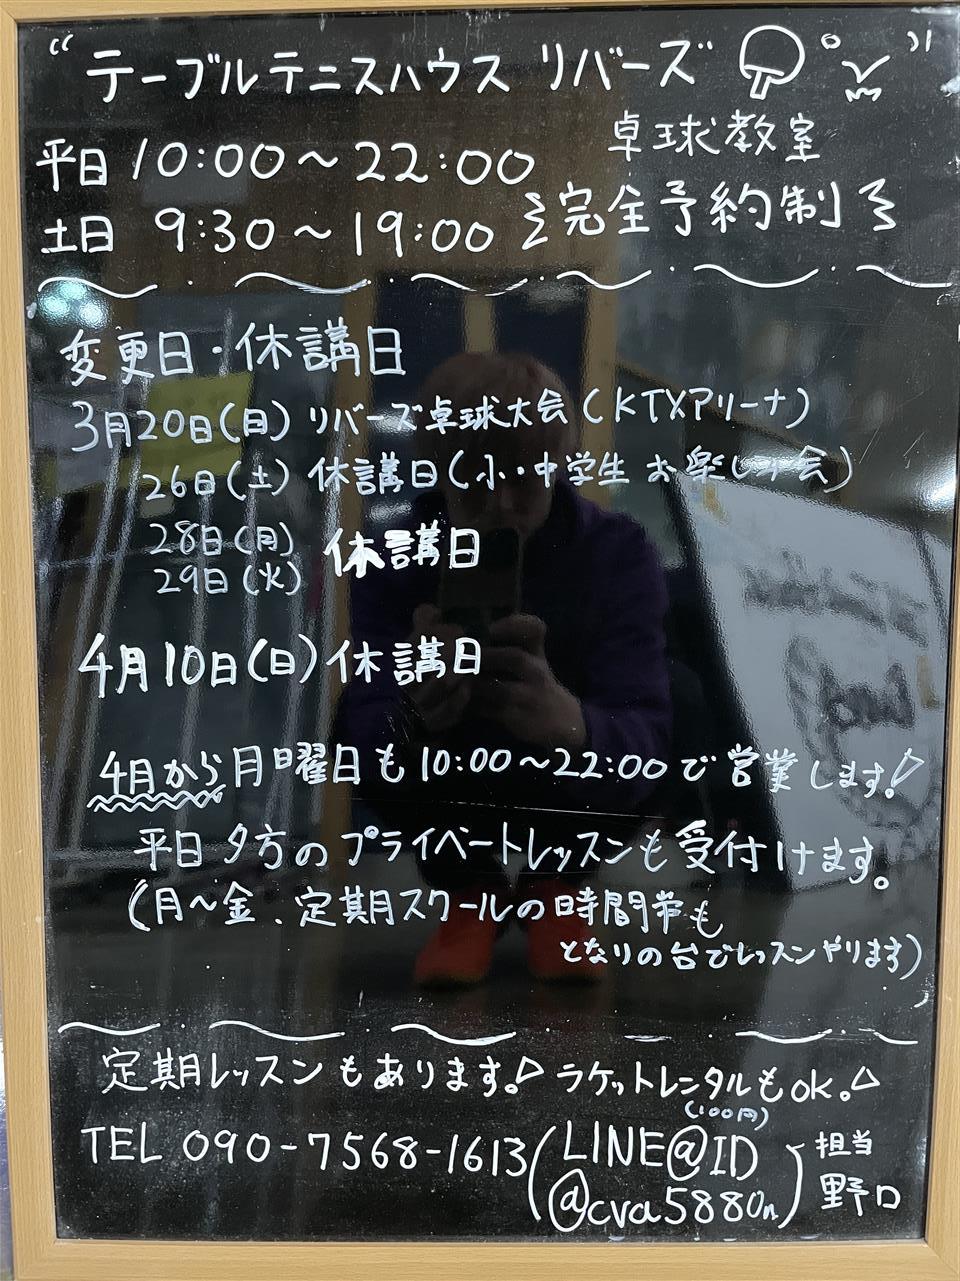 “テーブルテニスハウス リバーズ”
卓球教室
平日 10:00～22:00
土日 9:30～19:00 完全予約制
変更日・休講日
3月20日(日) リバーズ卓球大会(KTXアリーナ)
26日(土) 休講日(小・中学生 お楽しみ会)
28日(月)
29日(火) 休講日
4月10日(日) 休講日
4月から月曜日も10:00～22:00で営業します!
平日夕方のプライベートレッスンも受付けます。
(月～金、定期月スクールの時間帯も
となりの台でレッスンやります)
定期レッスンもあります! ラケットレンタルもOK!
(100円)
TEL 090-7568-1613 (LINE@ID
@cva5880n) 担当
野口